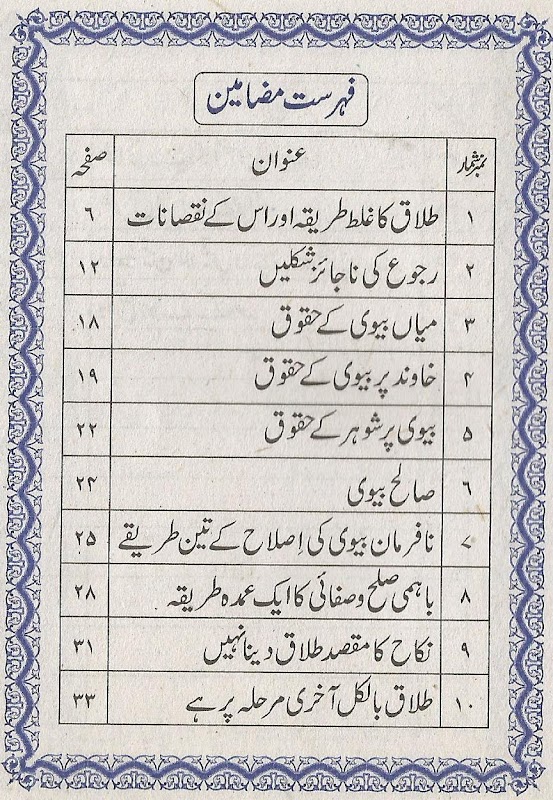 فہرست مضامین
نمبر شمار عنوان صفحہ
۱ طلاق کا غلط طریقہ اور اس کے نقصانات ۶
۲ رجوع کی ناجائز شکلیں ۱۲
۳ میاں بیوی کے حقوق ۱۸
۴ خاوند پر بیوی کے حقوق ۱۹
۵ بیوی پر شوہر کے حقوق ۲۲
۶ صالح بیوی ۲۴
۷ نافرمان بیوی کی اِصلاح کے تین طریقے ۲۵
۸ باہمی صلح و صفائی کا ایک عمدہ طریقہ ۲۸
۹ نکاح کا مقصد طلاق دینا نہیں ۳۱
۱۰ طلاق بالکل آخری مرحلہ پر ہے ۳۳